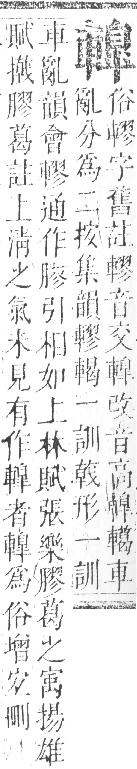 䡥俗轇字舊註轇音交䡥改音高䡥轕車
亂分為二按集韻轇轕一訓戟形一訓
車亂韻會轇通作膠引相如上林賦張樂膠葛之㝢揚雄
賦撠膠葛註上淸之氣未見有作䡥者䡥為俗增宐刪